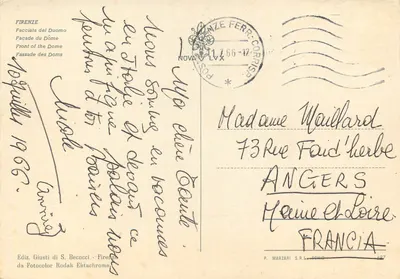 FIRENZE
Facciata del Duomo
Facade du Dôme
Front of the Dome
Fassade des Doms
Ma chère Tante
nous sommes en vacances
en Italie et devant ce
magnifique palais nous
pensons à toi. Baisers
Nicole
10 Juillet 1966.
FIRENZE FERR. CORRISP.
11.7.66-17
NOVA LVX
Madame Maillard
73 Rue Faid'herbe
ANGERS
Maine et Loire
FRANCIA
Ediz. Giusti di S. Becocci - Firenze
da Fotocolor Kodak Ektachrome